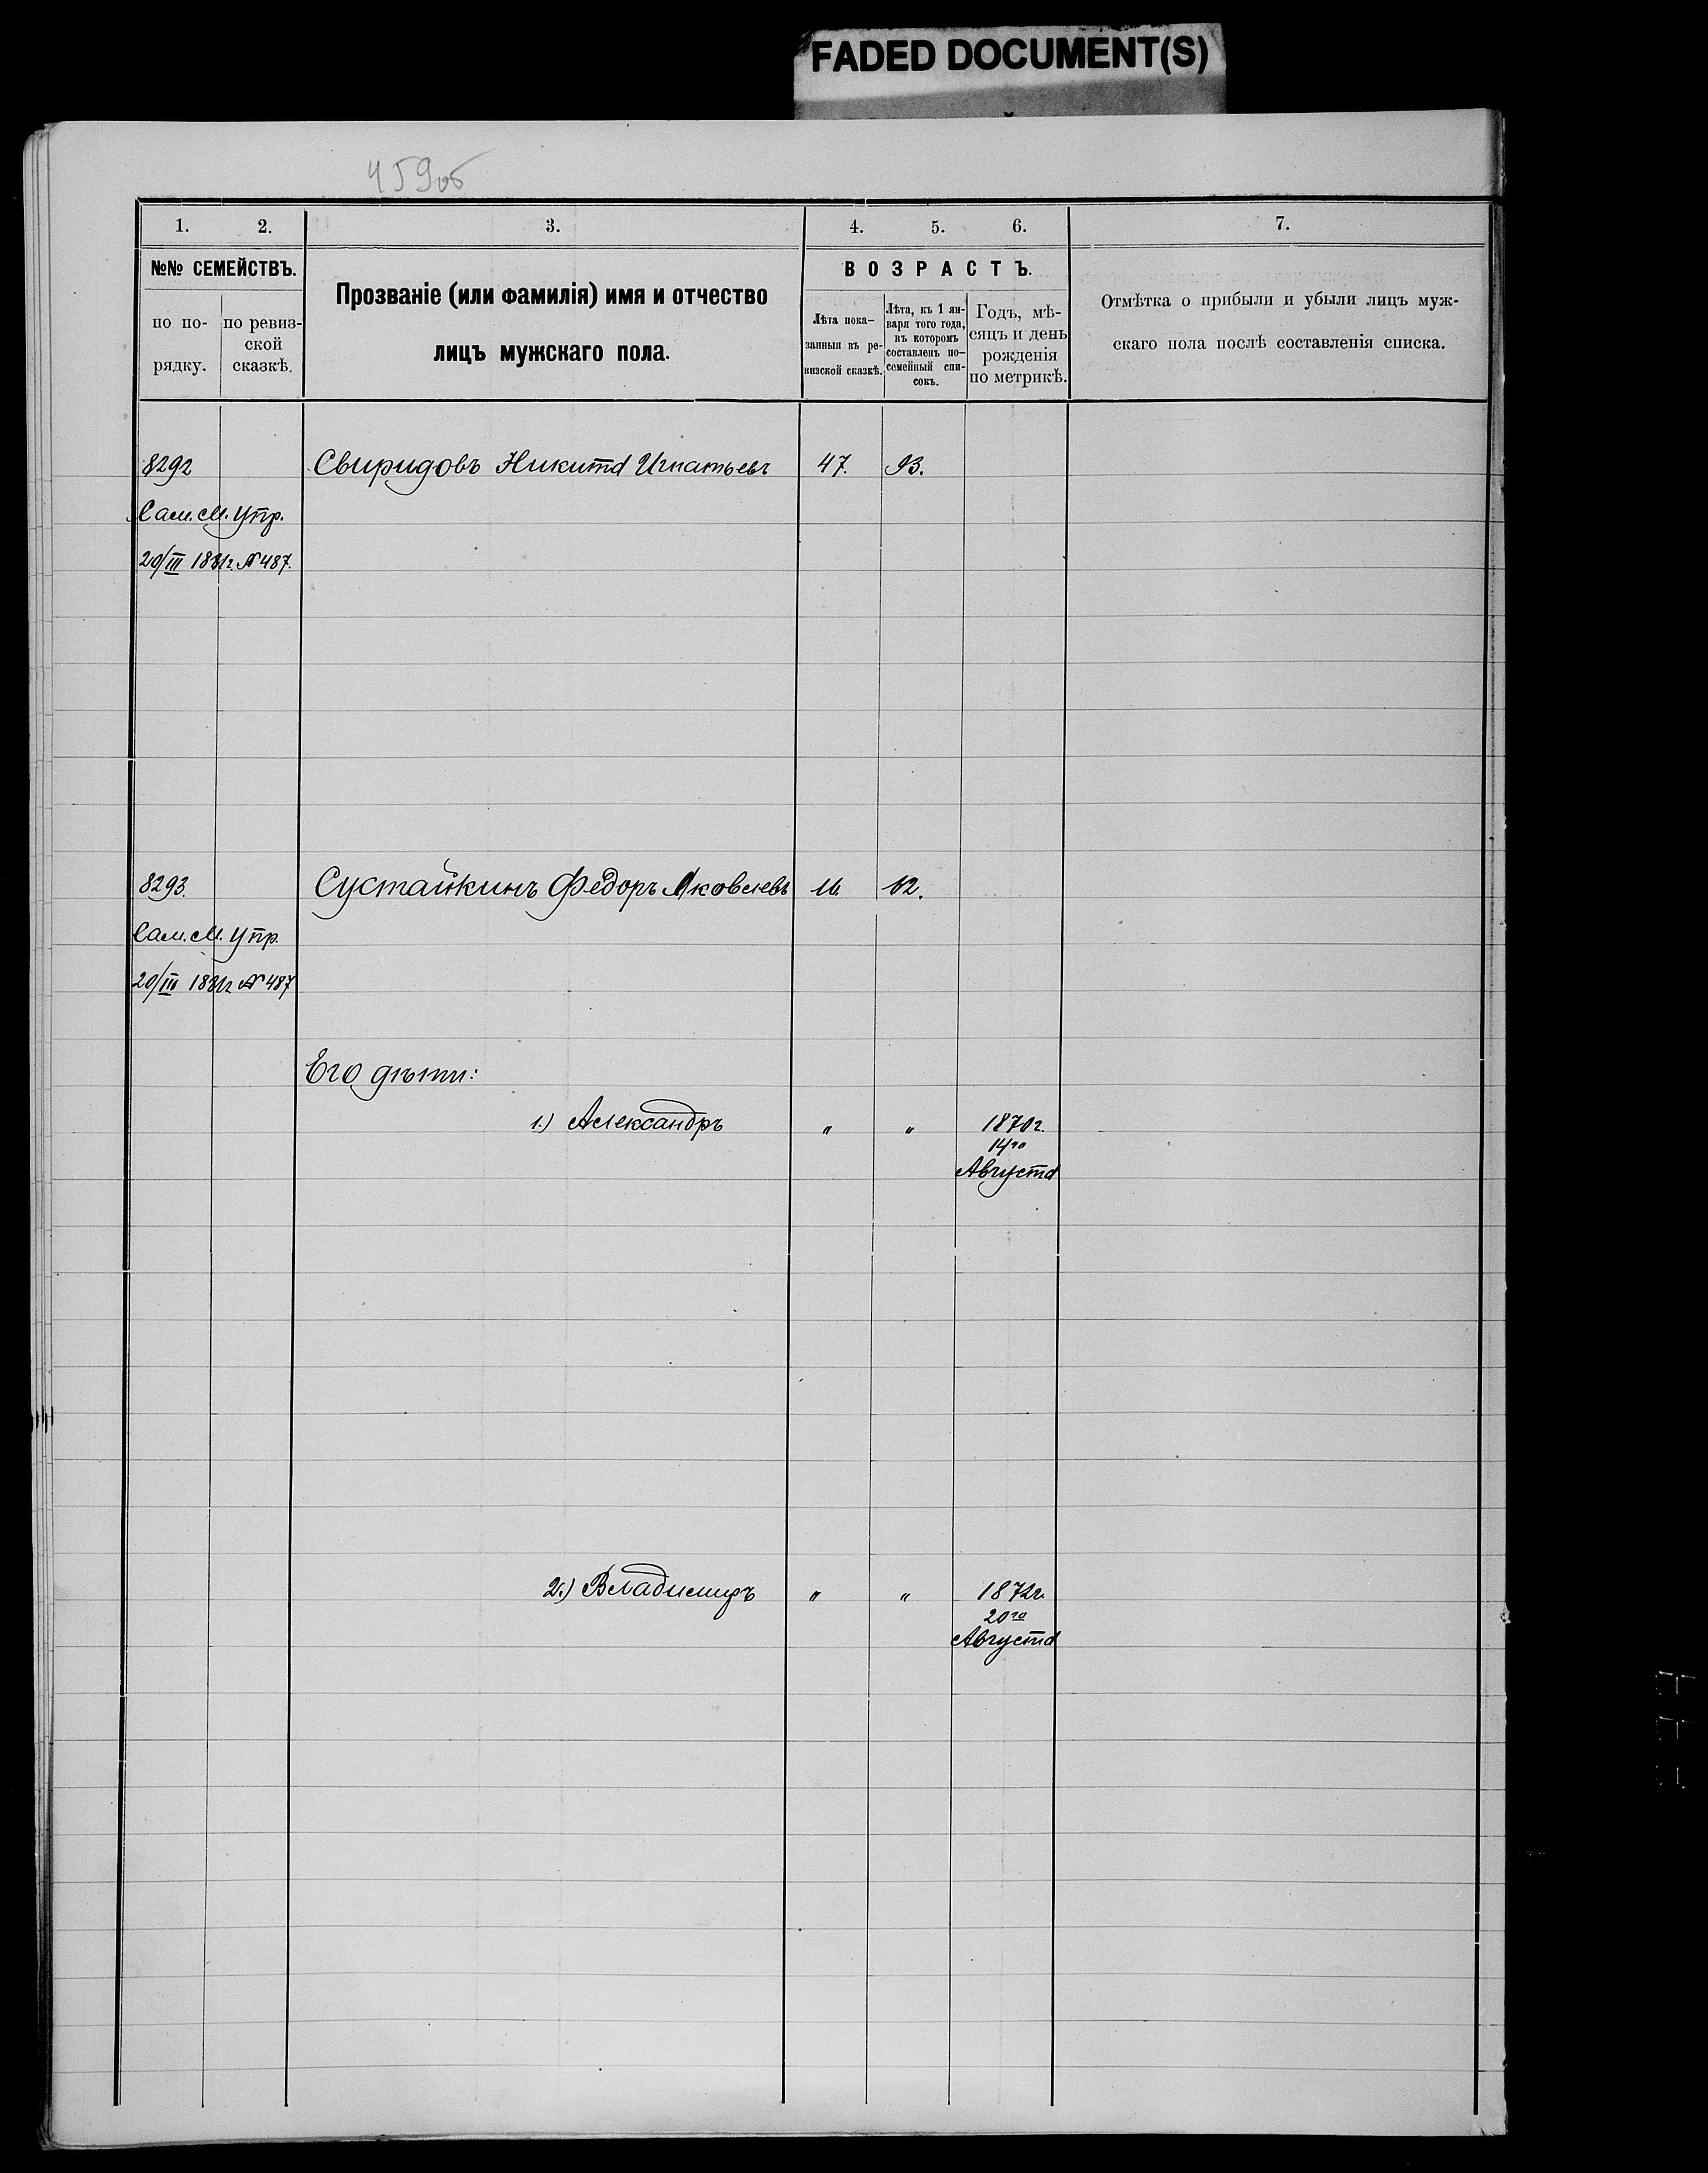 FADED DOCUMENT(S)
459об
1. 2. 3. 4. 5. 6. 7.
№№ СЕМЕЙСТВЪ.
по по-
рядку.
по ревиз-
ской
сказкѣ.
Прозваніе (или фамилія) имя и отчество
лицъ мужскаго пола.
ВОЗРАСТЪ.
Лѣта пока-
занныя въ ре-
визской сказкѣ.
Лѣта, къ 1 ян-
варя того года,
въ которомъ
составленъ по-
семейный спи-
сокъ.
Годъ, мѣ-
сяцъ и день
рожденія
по метрикѣ.
Отмѣтка о прибыли и убыли лицъ муж-
скаго пола послѣ составленія списка.
8292 Свиридовъ Никита Игнатьевъ 47. 93.
Сам. М. Упр.
20/III 1881г. № 487.
8293. Сустайкинъ Федоръ Яковлевъ 16 62.
Сам. М. Упр.
20/III 1881г. № 487
Его дѣти:
1.) Александръ " " 1870г.
14го
Августа
2.) Владимиръ " " 1872г.
20го
Августа